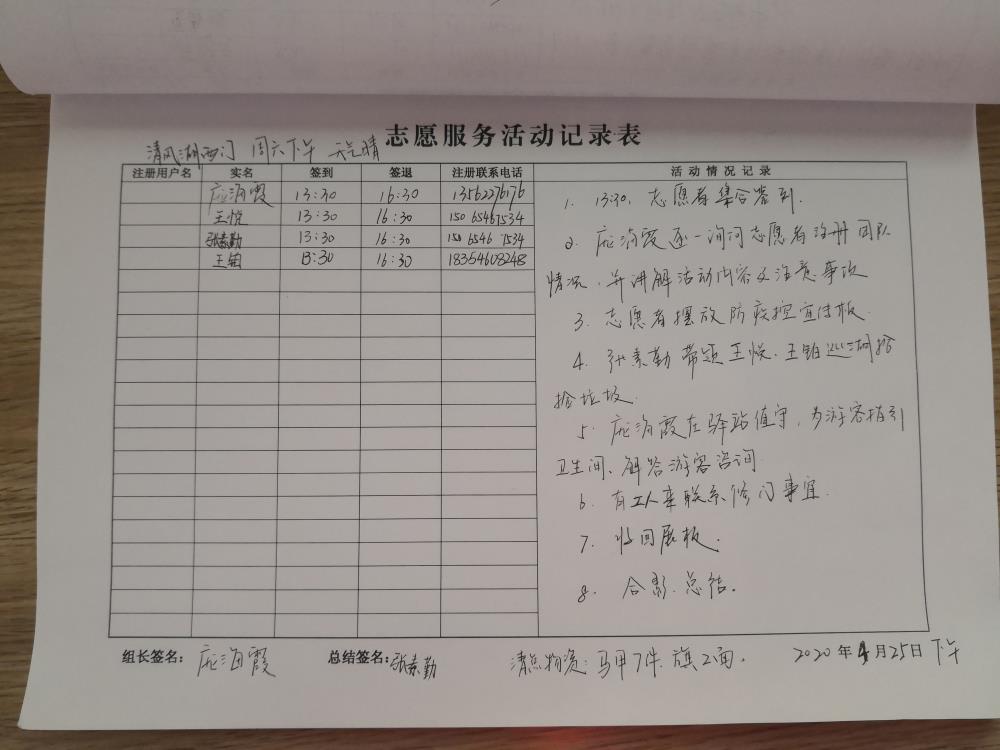 志愿服务活动记录表
清风湖西门 周六下午 天气晴
注册用户名 实名 签到 签退 注册联系电话 活动情况记录
庞海霞 13:30 16:30 13562276176
王悦 13:30 16:30 150 6546 7534
张素勤 13:30 16:30 150 6546 7534
王铂 13:30 16:30 18354608248
1. 13:30, 志愿者集合签到.
2. 庞海霞逐一询问志愿者注册团队
情况, 并讲解活动内容及注意事项
3. 志愿者摆放防疫控宣传板.
4. 张素勤带领王悦、王铂巡湖捡
拾垃圾.
5. 庞海霞在驿站值守, 为游客指引
卫生间、解答游客咨询
6. 有工人来联系修门事宜.
7. 收回展板.
8. 合影.总结.
组长签名: 庞海霞 总结签名: 张素勤 清点物资: 马甲7件. 旗2面. 2020年4月25日下午